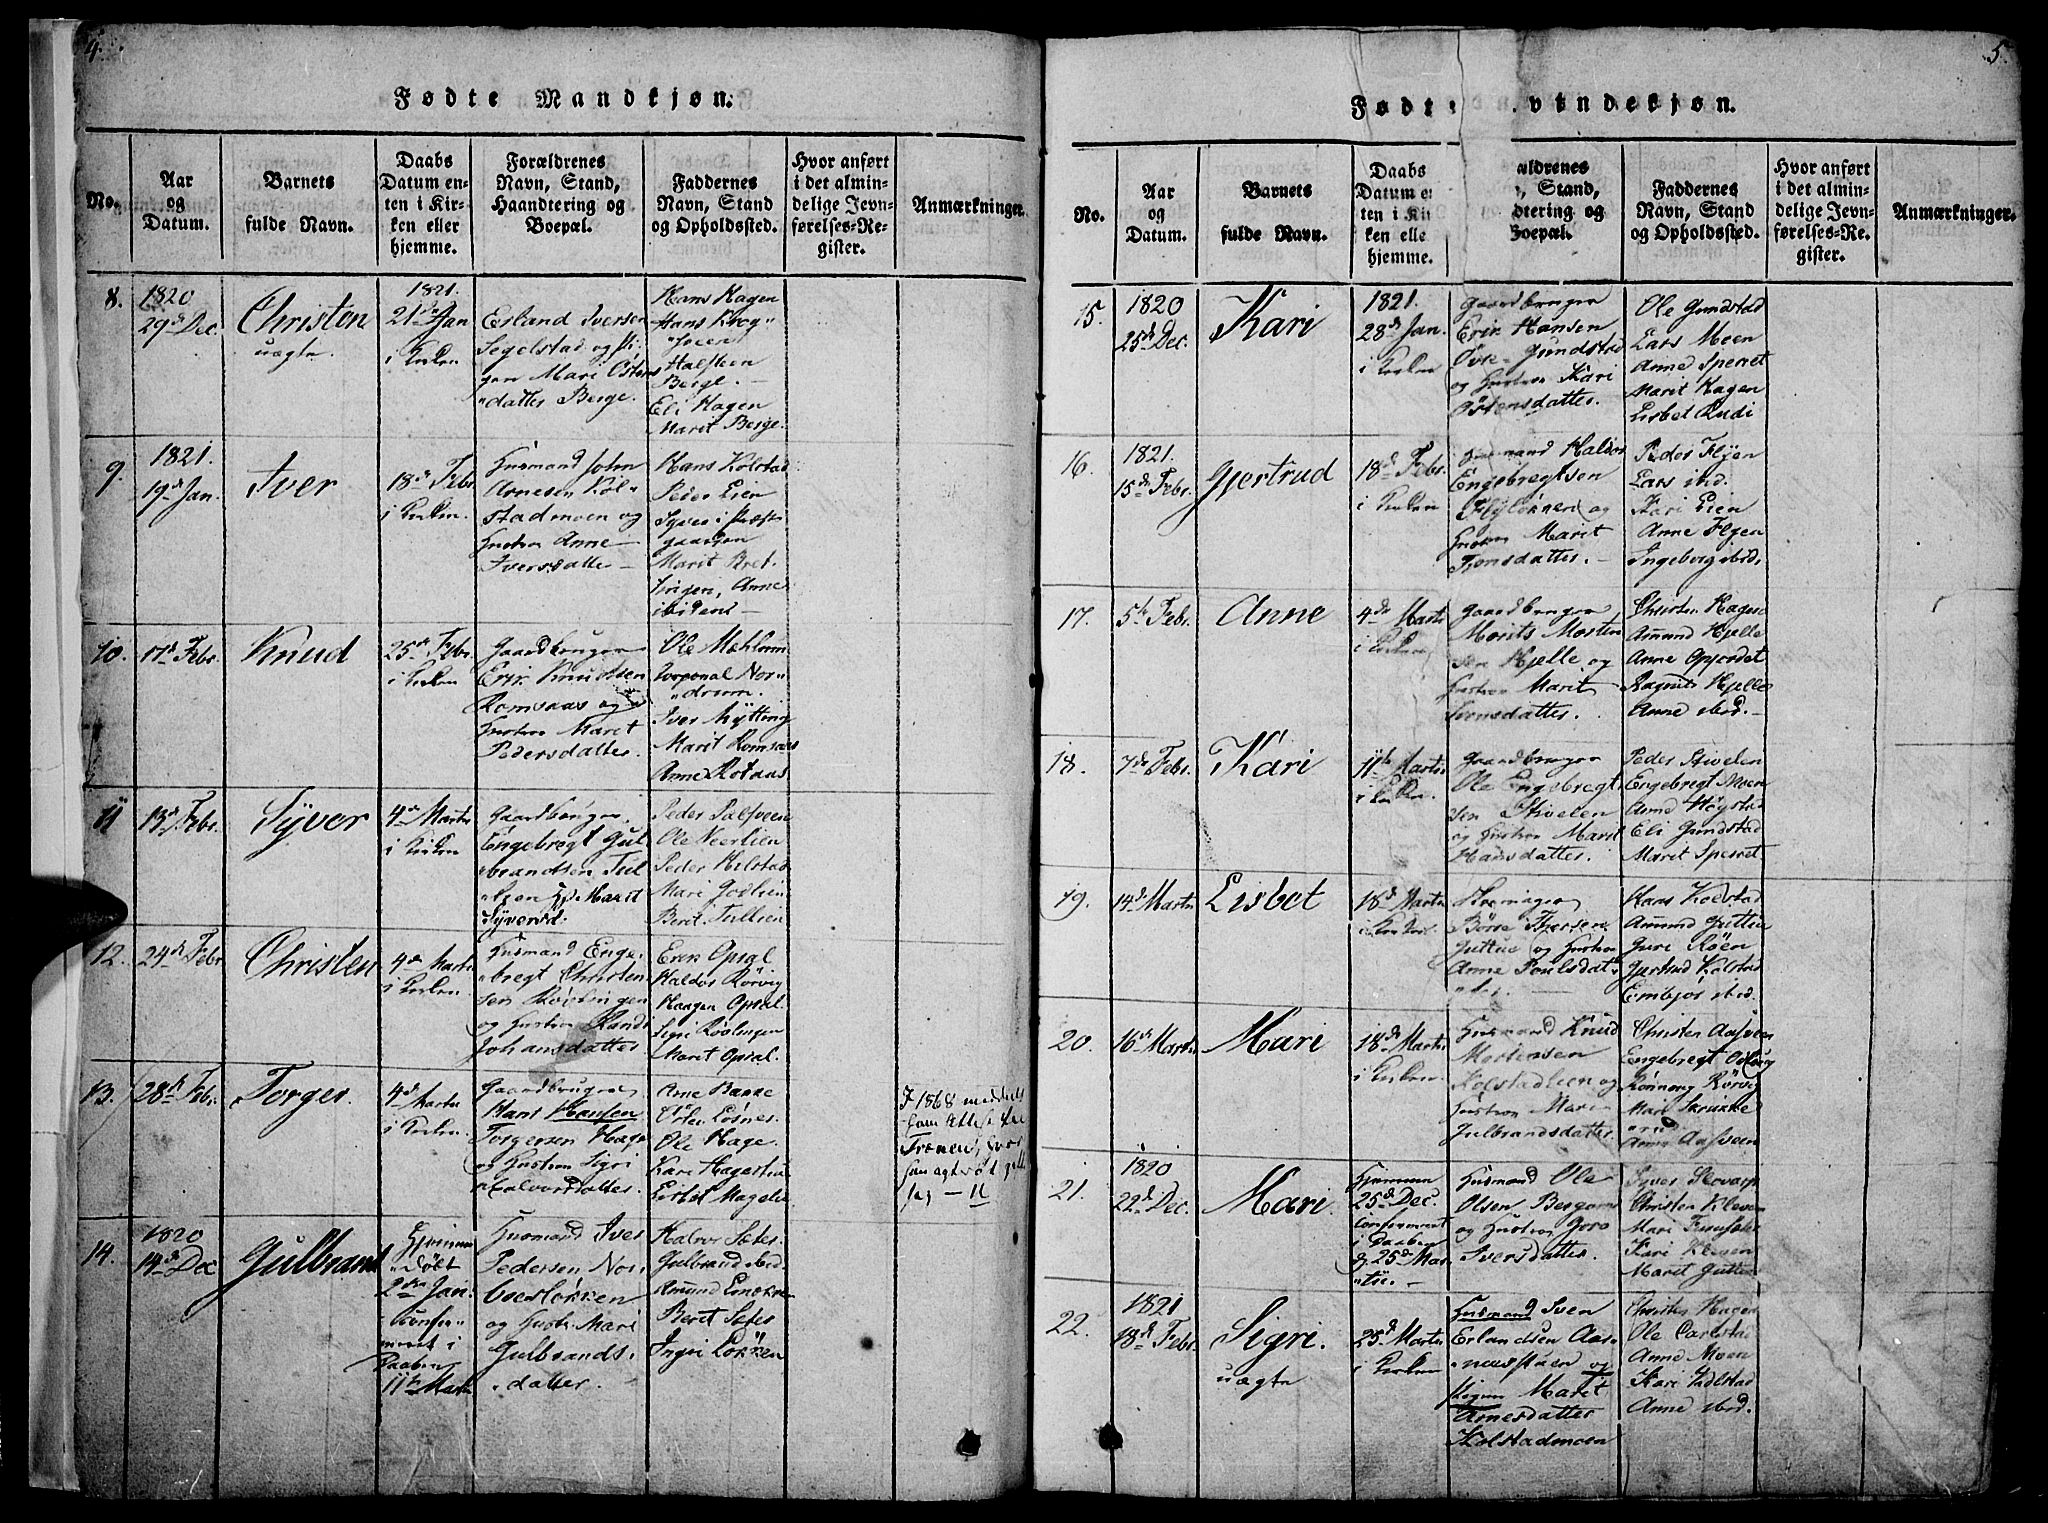 4.
Fødte Mandkjøn.
No.
Aar
og
Datum.
Barnets
fulde Navn.
Daabs
Datum en-
ten i Kir-
ken eller
hjemme.
Forældrenes
Navn, Stand,
Haandtering og
Boepæl.
Faddernes
Navn, Stand
og Opholdssted.
Hvor anført
i det almin-
delige Jevn-
førelses-Re-
gister.
Anmærkninger.
8.
1820
29de Dec.
Christen
uægte
1821.
21de Jan
i Kirken
Erland Iversen
Segelstad og Pi-
gen Mari Østens
datter Berge.
Hans Hagen
Hans Krog
Halsteen
Berge.
Eli Hagen
Marit Berge.
9.
1821.
19de Jan.
Iver
18de Febr
i Kirken.
Husmand John
Arnesen Kol-
stadmoen og
Hustru Anne
Iversdatter
Hans Kolstad
Peder Lien
Syver i Præst
gaarden
Marit Bret-
Anne
ibidem
10.
17de Febr.
Knud
25de Febr.
i Kirken
Gaardbruger
Erik Knudsen
Romsaas og
Hustru Maret
Pedersdatter.
Ole Mæhlum
Corporal Nor-
drum.
Iver Mytting
Marit Romsaas
Anne Rolaas
11
13de Febr.
Syver
4de Martii
i Kirken
Gaardbruger
Engebregt Gul-
brandsen Tul-
Marit
Syversd.
Peder Dalsveen
Ole Neerlien
Peder Kilstad
Mari Godlien
Berit Tullien
12.
24de Febr
Christen
4de Martii
i Kirken
Husmand Enge-
bregt Christen-
sen Rødlingen
og Hustru Randi
Johansdatter
Erik Opsal
Haldor Rørvig
Haagen Opsal
Sigri Rødlingen
Maret Opsal.
13.
28de Febr.
Torger.
4de Martii
i Kirken
Gaardbruger
Hans Hansen
Torgersen Hage
og Hustru Sigri
Halvorsdatter.
Arne Bakke
Ole Hage.
Kari Hagestue
Lisbet Hagele
I 1868 meddelt
14.
1820
14de Dec
Gulbrand
Hjemme-
døbt
2den Jan.
confir-
meret i
Daaben
11te Martii
Husmand Iver
Pedersen Nor-
Overløkken
og Hustr. Mari
Gulbrands-
datter.
Halvor Sæter
Gulbrand ibid.
Amund Lønokken
Beret Sæter
Ingri Løkken
5.
Fødte Qvindekjøn.
No.
Aar
og
Datum.
Barnets
fulde Navn.
Daabs
Datum e
ten i Kir
ken elle
hjemme.
ældrenes
, Stand,
dtering og
Boepæl.
Faddernes
Navn, Stand
og Opholdssted.
Hvor anført
i det almin-
delige Jevn-
førelses-Re-
gister.
Anmærkninger.
15.
1820
25de Dec.
Kari
1821.
28de Jan.
i Kirken
Gaardbruger
Erik Hansen
Øvre-Gunstad
og Hustru Kari
Østensdatter.
Ole Gunstad
Lars Moen
Anne Sperret
Marit Hagen
Lisbet Rudi
16.
1821.
15de Febr.
Gjertrud
18de Febr.
i Kirken
Husmand Haldor
Engebregtsen
Flyløkken og
Hustru Marit
Tronsdatter.
Peder Flyen
Lars ibid.
Kari Lien
Anne Flyen
Ingeborg ibid.
17.
5te Febr.
Anne
4de Martii
i Kirken
Gaardbruger
Morits Morten
sen Hjelle og
Hustru Marit
Tronsdatter.
Christen Hagen
Amund Hjelle
Anne Opjordet
Ragnild Hjelle
Anne ibid.
18.
7de Febr.
Kari
11te Martii
i Kirken.
Gaardbruger
Ole Engebregt-
sen Stivelen
og Hustru Marit
Hansdatter.
Peder Stivelen
Engebregt Moen
Anne Høystad
Eli Gunstad
Marit Sperret
19.
14de Martii
Lisbet
18de Martii
i Kirken.
Skomager
Børre Iversen
Juttue og Hustru
Anne Poulsdat-
ter.
Hans Kolstad
Amund Juttue
Guri Røen
Gertrud Kolstad
Embjør ibid.
20.
16de Martii
Mari
18de Martii
i Kirken
Husmand Knud
Mortensen
Kolstadlien og
Hustru Mari
Gulbrandsdatter
Christen Aasveen
Engebregt
Rønnong Rørvig
Mari Skrukke
rud
Anne Aasveen
21.
1820
22de Dec.
Mari.
Hjemme
25de Dec.
Confirmeret
i Daaben
d. 25de Mar-
tii.
Husmand Ole
Olsen Bergom
og Hustru Goro
Iversdatter.
Syver
Christen Kleven
Mari
Kari Kleven
Maret Juttue
22.
1821
18de Febr.
Sigri.
uægte
25de Martii
i Kirken
Husmand Sven
Erlandsen Aas-
og
Pigen Maret
Arnesdatter
Kolstadmoen
Christen Hagen
Ole Carlstad
Anne Moen
Kari Sadlstad
Anne ibid.